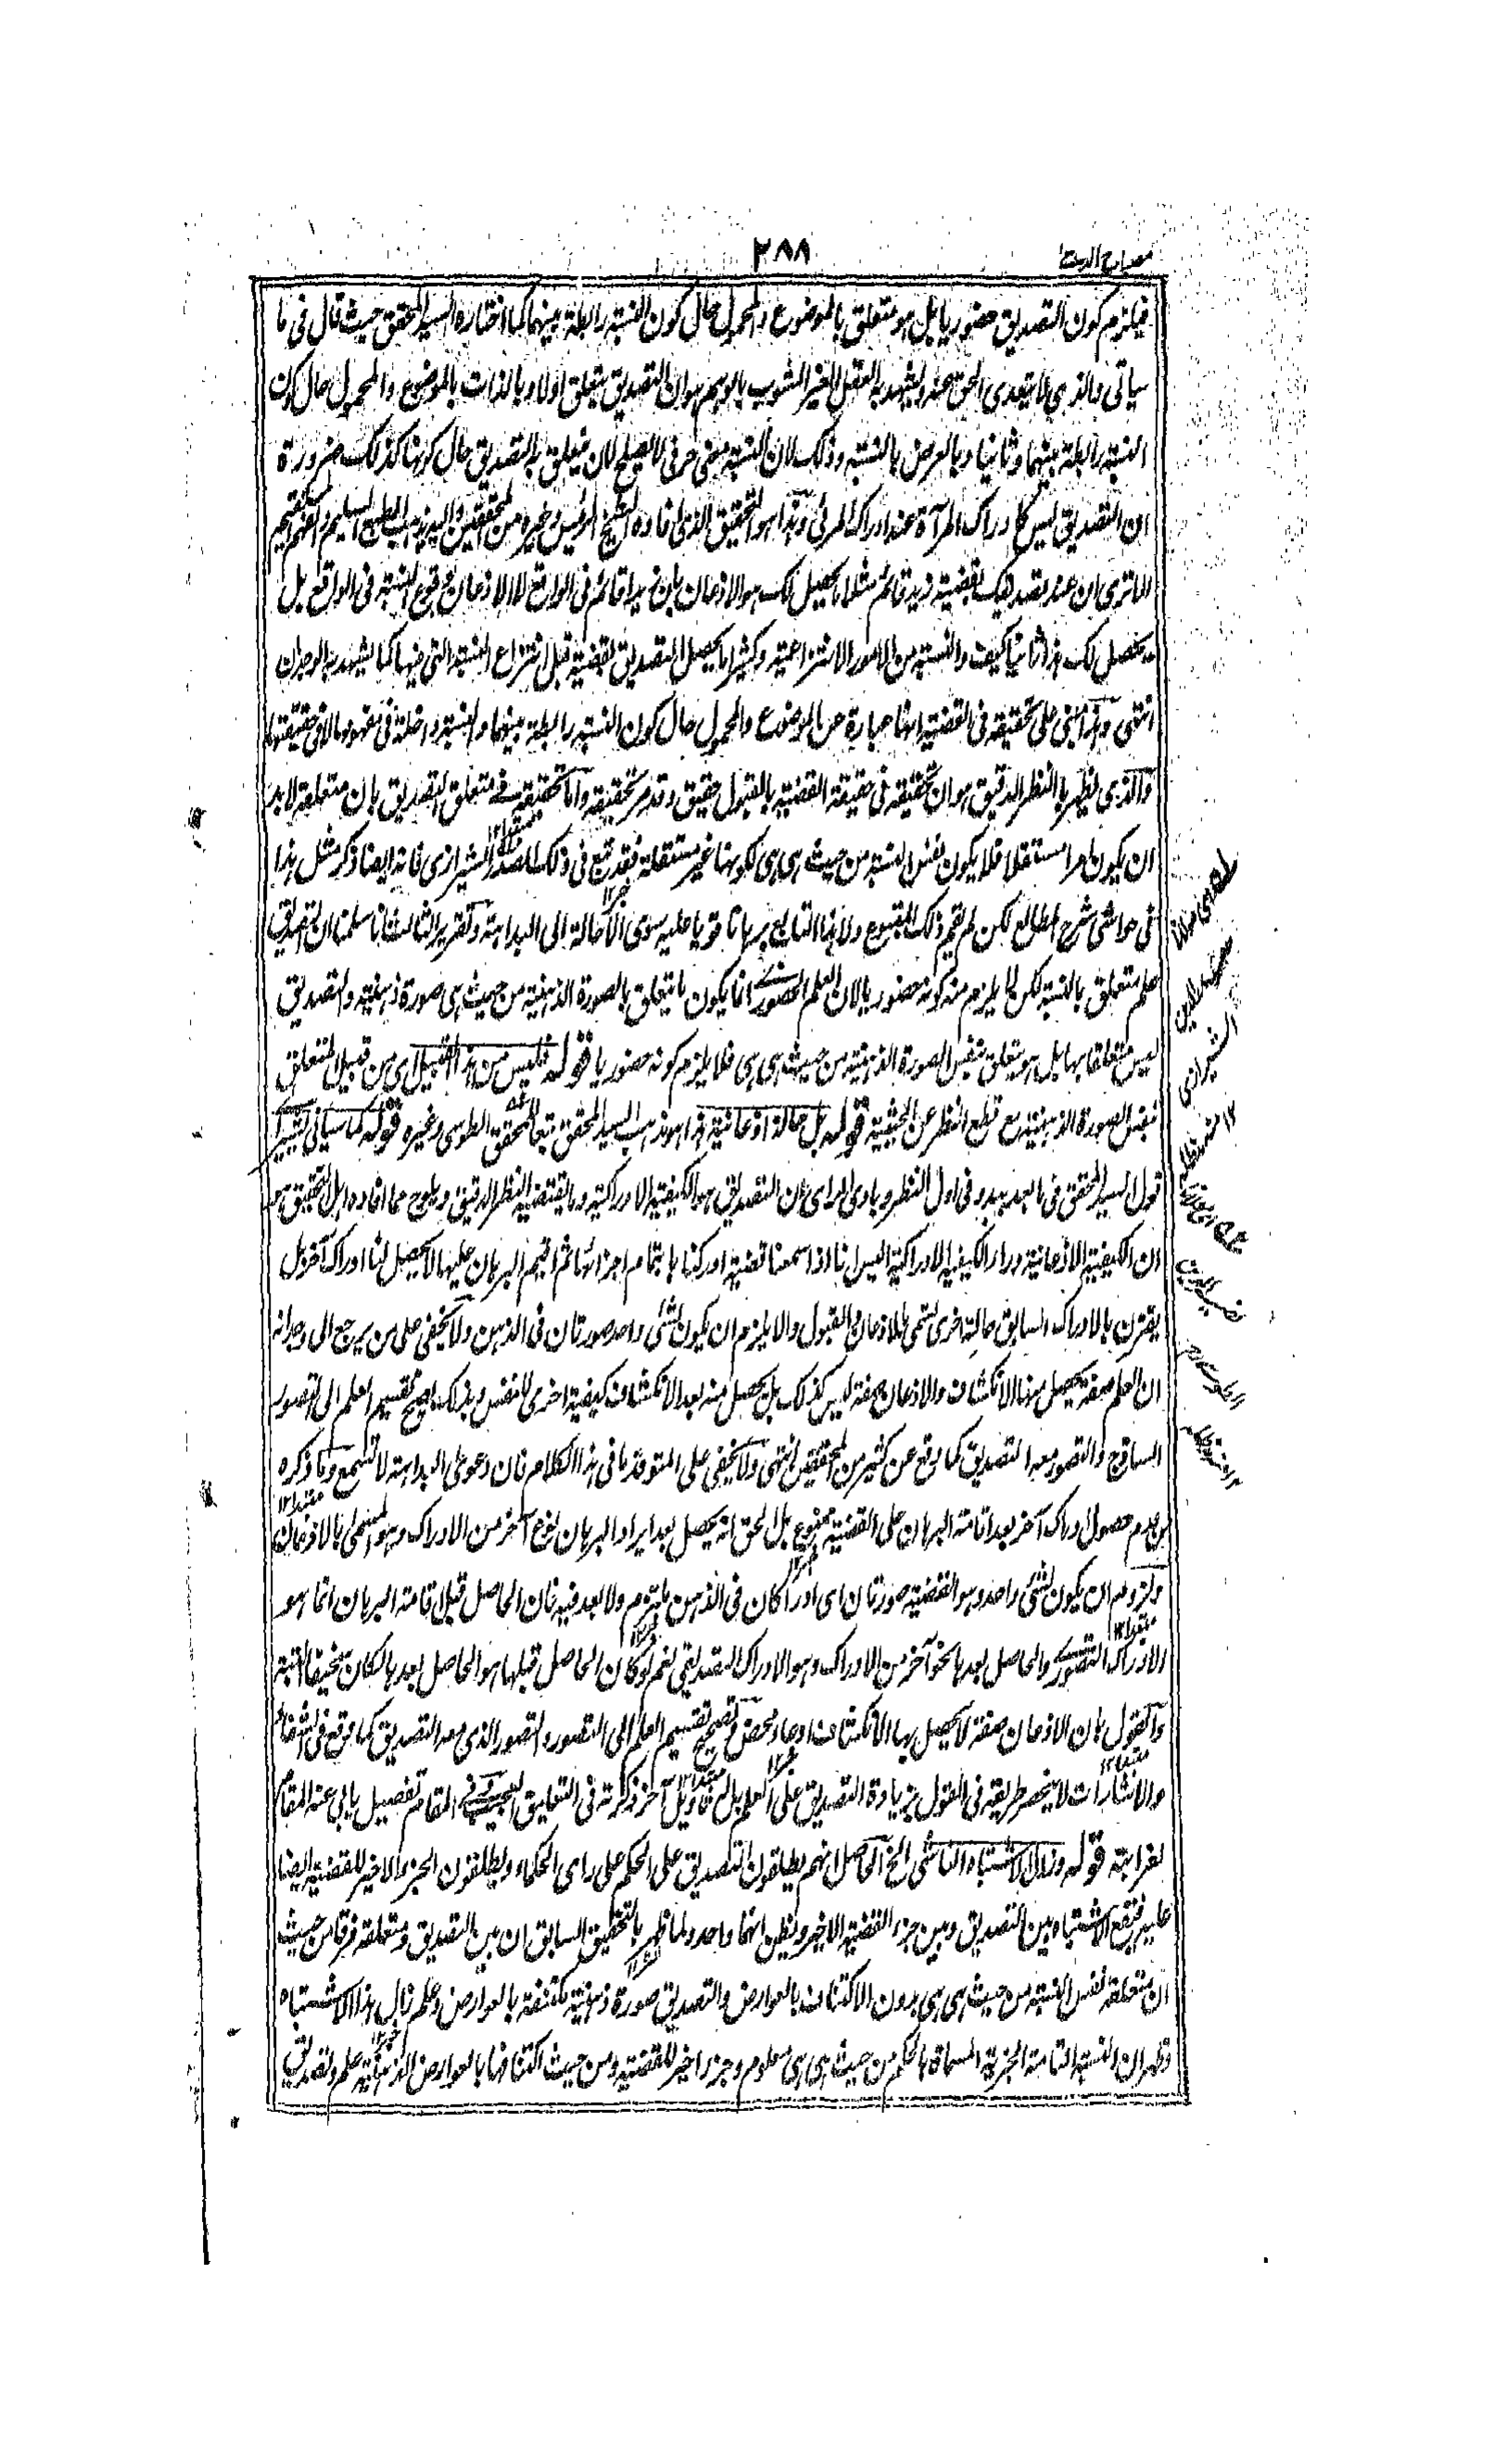 مصباح الدجى
٢٨٨
فيلزم كون التصديق حضوريا بل هو متعلق بالموضوع والمحمول حال كون النسبة رابطة بينهما كما اختاره السيد المحقق حيث قال فى ما
سياتى والذى لا يتعدى الحق عنه ويشهد به العقل الغير المشوب بالوهم هو ان التصديق يتعلق اولا وبالذات بالموضوع والمحمول حال كون
النسبة رابطة بينهما وثانيا وبالعرض بالنسبة وذلك لان النسبة معنى حرفى لا يصلح لان يتعلق به التصديق حال كونها كذلك ضرورة
ان التصديق ليس كادراك المرآة عند ادراك المرئى وهذا هو التحقيق الذى افاده الشيخ الرئيس وغيره من المحققين واليه يذهب الطبع السليم والفهم المستقيم
الا ترى ان عند تصديقك بقضية زيد قائم مثلا يحصل لك هو الاذعان بان زيدا قائم فى الواقع لا الاذعان بوقوع النسبة فى الواقع بل
يحصل لك هذا ثانيا كيف والنسبة من الامور الانتزاعية وكثيرا ما يحصل التصديق بقضية قبل انتزاع النسبة التى فيها كما يشهد به الوجدان
انتهى وهذا مبنى على تحقيقه فى القضية انها عبارة عن الموضوع والمحمول حال كون النسبة رابطة بينهما والنسبة داخلة فى مفهومها لا فى حقيقتها
والذى يظهر بالنظر الدقيق هو ان تحقيقه فى حقيقة القضية بالقبول حقيق وقد مر تحقيقه واما تحقيقه فى متعلق التصديق بان متعلقه لا بد
ان يكون امرا مستقلا فلا يكون نفس النسبة من حيث هى هى لكونها غير مستقلة فقد تبع فى ذلك الصدر الشيرازى فانه ايضا ذكر مثل هذا
فى حواشى شرح المطالع لكن لم يقم ذلك المتبوع ولا هذا التابع برهانا قويا عليه سوى الاحالة الى البداهة وتقرير الثالث انا سلمنا ان التصديق
علم متعلق بالنسبة لكن لا يلزم منه كونه حضوريا لان العلم الحضورى انما يكون ما يتعلق بالصورة الذهنية من حيث هى صورة ذهنية والتصديق
ليس متعلقا بها بل هو متعلق بنفس الصورة الذهنية من حيث هى هى فلا يلزم كونه حضوريا قوله فليس من هذا القبيل اى من قبيل المتعلق
بنفس الصورة الذهنية مع قطع النظر عن الحيثية قوله بل حالة اذعانية هذا هو مذهب السيد المحقق تبعا للمحقق الطوسى وغيره قوله كما سياتى
قول السيد المحقق فى ما بعد يبدو فى اول النظر وبادى الراى ان التصديق هو الكيفية الادراكية وما يقتضيه النظر الدقيق ويلوح مما افاده اهل التحقيق هو
ان الكيفية الاذعانية وراء الكيفية الادراكية اليس انا اذا سمعنا قضية ادركناها بتمام اجزائها ثم اقيم البرهان عليها لا يحصل لنا ادراك آخر بل
يقترن بالادراك السابق حالة اخرى تسمى بالاذعان والقبول والا يلزم ان يكون لشئ واحد صورتان فى الذهن ولا يخفى على من يرجع الى وجدانه
ان العلم صفة يحصل منها الانكشاف والاذعان صفة ليس كذلك بل يحصل منه بعد الانكشاف كيفية اخرى للنفس وبذلك يصح تقسيم العلم الى التصور
الساذج والتصور معه التصديق كما وقع عن كثير من المحققين انتهى ولا يخفى على المتوقد ما فى هذا الكلام فان دعوى البداهة لا تسمع وما ذكره
من عدم حصول ادراك آخر بعد اقامة البرهان على القضية ممنوع بل الحق انه يحصل بعد ايراد البرهان نوع آخر من الادراك وهو المسمى بالاذعان
ولزوم ان يكون لشئ واحد وهو القضية صورتان اى ادراكان فى الذهن ملتزم ولا بعد فيه فان الحاصل قبل اقامة البرهان انما هو
الادراك التصورى والحاصل بعدها نحو آخر من الادراك وهو الادراك التصديقى نعم لو كان الحاصل قبلها هو الحاصل بعدها لكان سخيفا البتة
والقول بان الاذعان صفة لا يحصل بها الانكشاف ادعاء محض وتصحيح تقسيم العلم الى التصور والتصور الذى معه التصديق كما وقع فى الشفاء
والاشارات لا ينحصر طريقه فى القول بزيادة التصديق على العلم بل له تاويل آخر ذكرته فى التعليق العجيب وفى المقام تفصيل يابى عنه المقام
لغرابته قوله وزال الاشتباه الناشى الخ الحاصل انهم يطلقون التصديق على الحكم على راى الحكماء ويطلقون الجزء الاخير للقضية ايضا
عليه فيقع الاشتباه بين التصديق وبين جزء القضية الاخير ويظن انهما واحد ولما ظهر بالتحقيق السابق ان بين التصديق ومتعلقه فرقا من حيث
ان متعلقه نفس النسبة من حيث هى هى بدون الاكتناف بالعوارض والتصديق صورة ذهنية مكتنفة بالعوارض وعلم زال هذا الاشتباه
وظهر ان النسبة التامة الخبرية المسماة بالحكم من حيث هى هى معلوم وجزء اخير للقضية ومن حيث اكتنافها بالعوارض الذهنية علم وتصديق
الشيرازى
نصير الدين
الطوسى